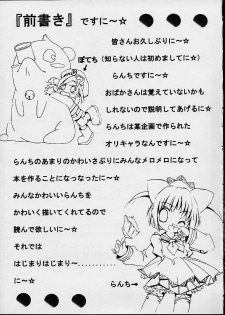 『前書き』ですに～☆
皆さんお久しぶりに～☆
ぽてち
(知らない人は初めましてに～☆
らんちですに～☆
おばかさんは覚えていないかも
しれないので説明してあげるに～
らんちは某企画で作られた
オリキャラなんですに～☆
らんちのあまりのかわいさぶりにみんなメロメロになって
本を作ることになっなったに～☆
みんなかわいいらんちを
かわいく描いてくれてるので
読んで欲しいに～☆
それでは
はじまりはじまり～…………
に～☆
らんち→